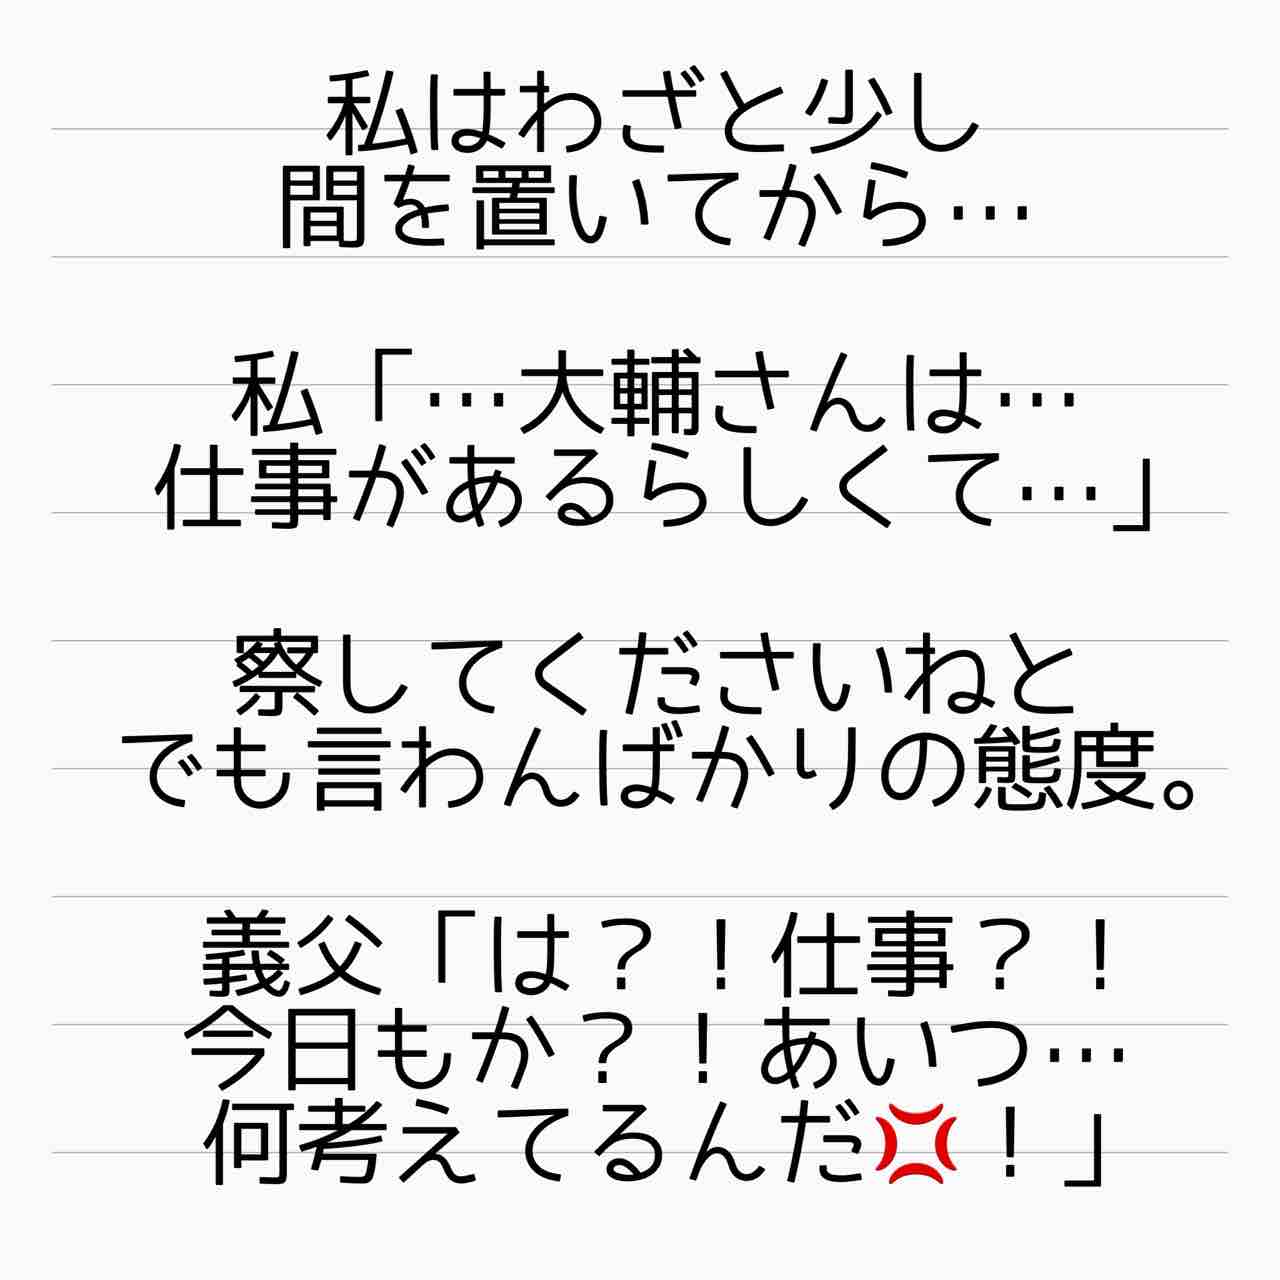 私はわざと少し
間を置いてから…
私「…大輔さんは…
仕事があるらしくて…」
察してくださいねと
でも言わんばかりの態度。
義父「は？！仕事？！
今日もか？！あいつ…
何考えてるんだ💢！」